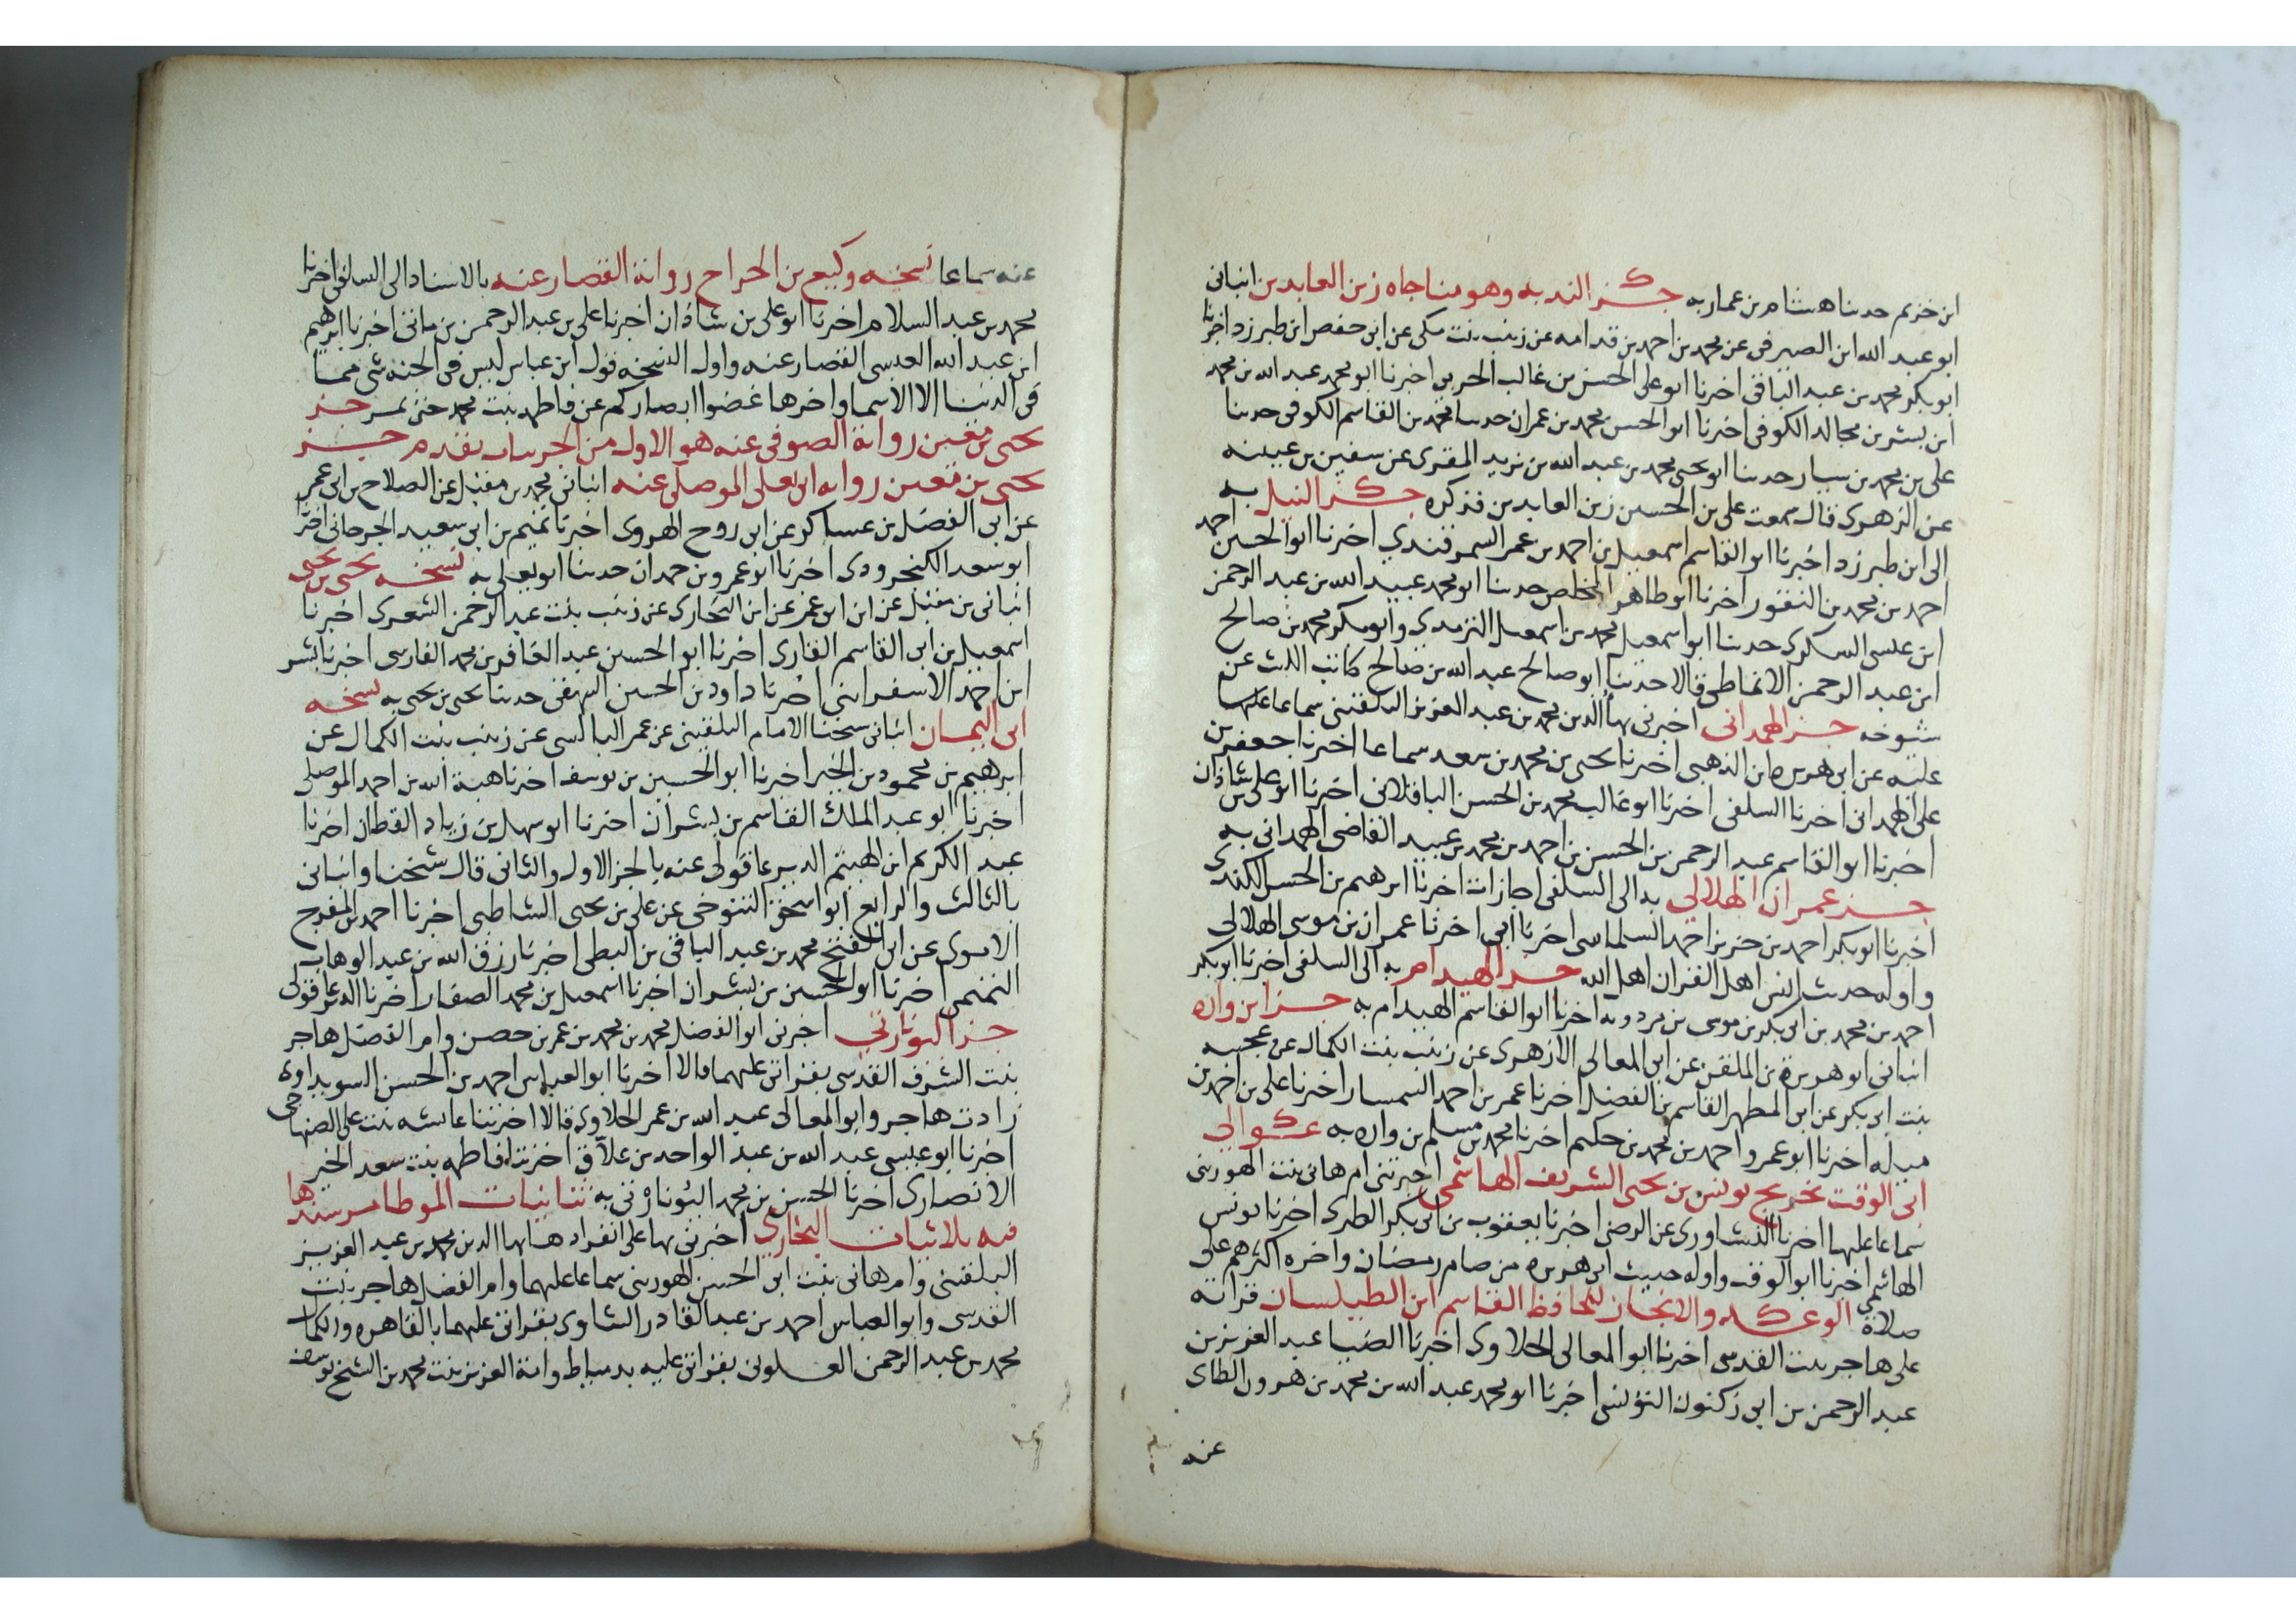 ابن خزيم حدثنا هشام بن عمار به جزء الندبه وهو مناجاه زين العابدين انبانى
ابو عبد الله ابن الصيرفى عن محمد بن احمد بن قدامه عن زينب بنت مكى عن ابى حفص ابن طبرزد اخبرنا
ابو بكر محمد بن عبد الباقى اخبرنا ابو على الحسن بن غالب الحربى اخبرنا ابو محمد عبد الله بن محمد
ابن بشر بن مجالد الكوفى اخبرنا ابو الحسن محمد بن عمران حدثنا محمد بن القاسم الكوفى حدثنا
على بن محمد بن سيار حدثنا ابو يحيى محمد بن عبد الله بن يزيد المقرى عن سفين بن عيينه
عن الزهرى قال سمعت على بن الحسين زين العابدين فذكره جزء النيل به
الى ابن طبرزد اخبرنا ابو القاسم اسمعيل بن احمد بن عمر السمرقندي اخبرنا ابو الحسين احمد
احمد بن محمد بن النقور اخبرنا ابو طاهر المخلص حدثنا ابو محمد عبيد الله بن عبد الرحمن
ابن عيسى السكرى حدثنا ابو اسمعيل محمد بن اسمعيل الترمذي وابو بكر محمد بن صالح
ابن عبد الرحمن الانماطى قالا حدثنا ابو صالح عبد الله بن صالح كاتب الليث عن
شيوخه جزء الهمدانى اخبرنى بهاء الدين محمد بن عبد العزيز البلقينى سماعا عليه
عليه عن ابى هريره ابن الذهبى اخبرنا يحيى بن محمد بن سعد سماعا اخبرنا جعفر بن
على الهمدانى اخبرنا السلفى اخبرنا ابو غالب محمد بن الحسن الباقلانى اخبرنا ابو على بن شاذان
اخبرنا ابو القاسم عبد الرحمن بن الحسن بن احمد بن محمد بن عبيد القاضى الهمدانى به
جزء عمران الهلالى به الى السلفى اجازات اخبرنا ابرهيم بن الحسن الكندى
اخبرنا ابو بكر احمد بن حرير بن احمد السلماسى اخبرنا ابى اخبرنا عمران بن موسى الهلالى
واوله حديث انس اهل القران اهل الله جزء الهيدام به الى السلفى اخبرنا ابو بكر
احمد بن محمد بن ابى بكر بن موسى بن مردويه اخبرنا ابو القاسم الهيدام به جزء ابن واره
انبانى ابو هريرة بن الملقن عن ابى المعالى الازهرى عن زينب بنت الكمال عن عجيبه
بنت ابى بكر عن ابى المطهر القاسم بن الفضل اخبرنا عمر بن احمد السمسار اخبرنا على بن احمد بن
ميله اخبرنا ابو عمرو احمد بن محمد بن حكيم اخبرنا محمد بن مسلم بن واره به عوالى
ابى الوقت تخريج يونس بن يحيى الشريف الهاشمى اخبرتنى ام هانى بنت الهورينى
سماعا عليها اخبرنا النشاورى عن الرضى اخبرنا يعقوب بن ابى بكر الطبرى اخبرنا يونس
الهاشمى اخبرنا ابو الوقت واوله حديث ابى هريره من صام رمضان واخره اكثرهم على
صلاة الوعد والانجاز للحافظ القاسم ابن الطيلسان قراته
على هاجر بنت القدسى اخبرنا ابو المعالى الحلاوى اخبرنا الضيا عبد العزيز بن
عبد الرحمن بن ابى زكنون التونسى اخبرنا ابو محمد عبد الله بن محمد بن هرون الطاى
عنه
عنه سماعا نسخه وكيع بن الجراح رواية القصار عنه بالاسناد الى السلفى اخبرنا
محمد بن عبد السلام اخبرنا ابو على بن شاذان اخبرنا على بن عبد الرحمن بن ماتى اخبرنا ابرهيم
ابن عبد الله العبسى القصار عنه واول النسخه قول ابن عباس ليس فى الجنه شى مما
فى الدنيا الا الاسما واخرها غضوا ابصاركم عن فاطمه بنت محمد حتى تمر جزء
يحيى بن معين رواية الصوفى عنه هو الاول من الحربيات يقدم جزء
يحيى بن معين روايه ابى يعلى الموصلى عنه انبانى محمد بن مقبل عن الصلاح بن ابى عمر
عن ابى الفضل بن عساكر عن ابى روح الهروى اخبرنا تميم بن ابى سعيد الجرجانى اخبرنا
ابو سعد الكنجرودى اخبرنا ابو عمرو بن حمدان حدثنا ابو يعلى به نسخه يحيى بن يحيى
انبانى بن مقبل عن ابن ابى عمر عن ابن البخارى عن زينب بنت عبد الرحمن الشعرى اخبرنا
اسمعيل بن ابى القاسم القارى اخبرنا ابو الحسين عبد الغافر بن محمد الفارسى اخبرنا بشر
ابن احمد الاسفراينى اخبرنا داود بن الحسين البيهقى حدثنا يحيى بن يحيى به نسخه
ابى اليمان انبانى شيخنا الامام البلقينى عن عمر البالسى عن زينب بنت الكمال عن
ابرهيم بن محمود بن الخير اخبرنا ابو الحسين بن يوسف اخبرنا هبة الله بن احمد الموصلى
اخبرنا ابو عبد الملك القاسم بن بشران اخبرنا ابو سهل بن زياد القطان اخبرنا
عبد الكريم ابن الهيثم الديرعاقولى عنه بالجز الاول والثانى قال شيخنا وانبانى
بالثالث والرابع ابو اسحق التنوخى عن على بن يحيى الشاطبى اخبرنا احمد بن المفرج
الاموى عن ابى الفتح محمد بن عبد الباقى بن البطى اخبرنا رزق الله بن عبد الوهاب
التميمى اخبرنا ابو الحسين بن بشران اخبرنا اسمعيل بن محمد الصفار اخبرنا الديرعاقولى
جزء اليونارتى اخبرنى ابو الفضل محمد بن محمد بن عمر بن حصن وام الفضل هاجر
بنت الشرف القدسى بقراتى عليهما قالا اخبرنا ابو العباس احمد بن الحسن السويداوى
زادت هاجر وابو المعالى عبد الله بن عمر الحلاوى قالا اخبرتنا عايشه بنت على الصنهاجى
اخبرنا ابو عيسى عبد الله بن عبد الواحد بن علاق اخبرتنا فاطمه بنت سعد الخير
الانصارى اخبرنا الحسن بن محمد اليونارتى به ثنائيات الموطا مر سندها
فيه ثلاثيات البخارى اخبرنى بها على انفرادها بها الدين محمد بن عبد العزيز
البلقينى وام هانى بنت ابى الحسن الهورينى سماعا عليهما وام الفضل هاجر بنت
القدسى وابو العباس احمد بن عبد القادر الشاوى بقراتى عليهما بالقاهره والكمال
محمد بن عبد الرحمن بقراتى عليه بدمياط وامة العزيز بنت محمد بن الشيخ يوسف